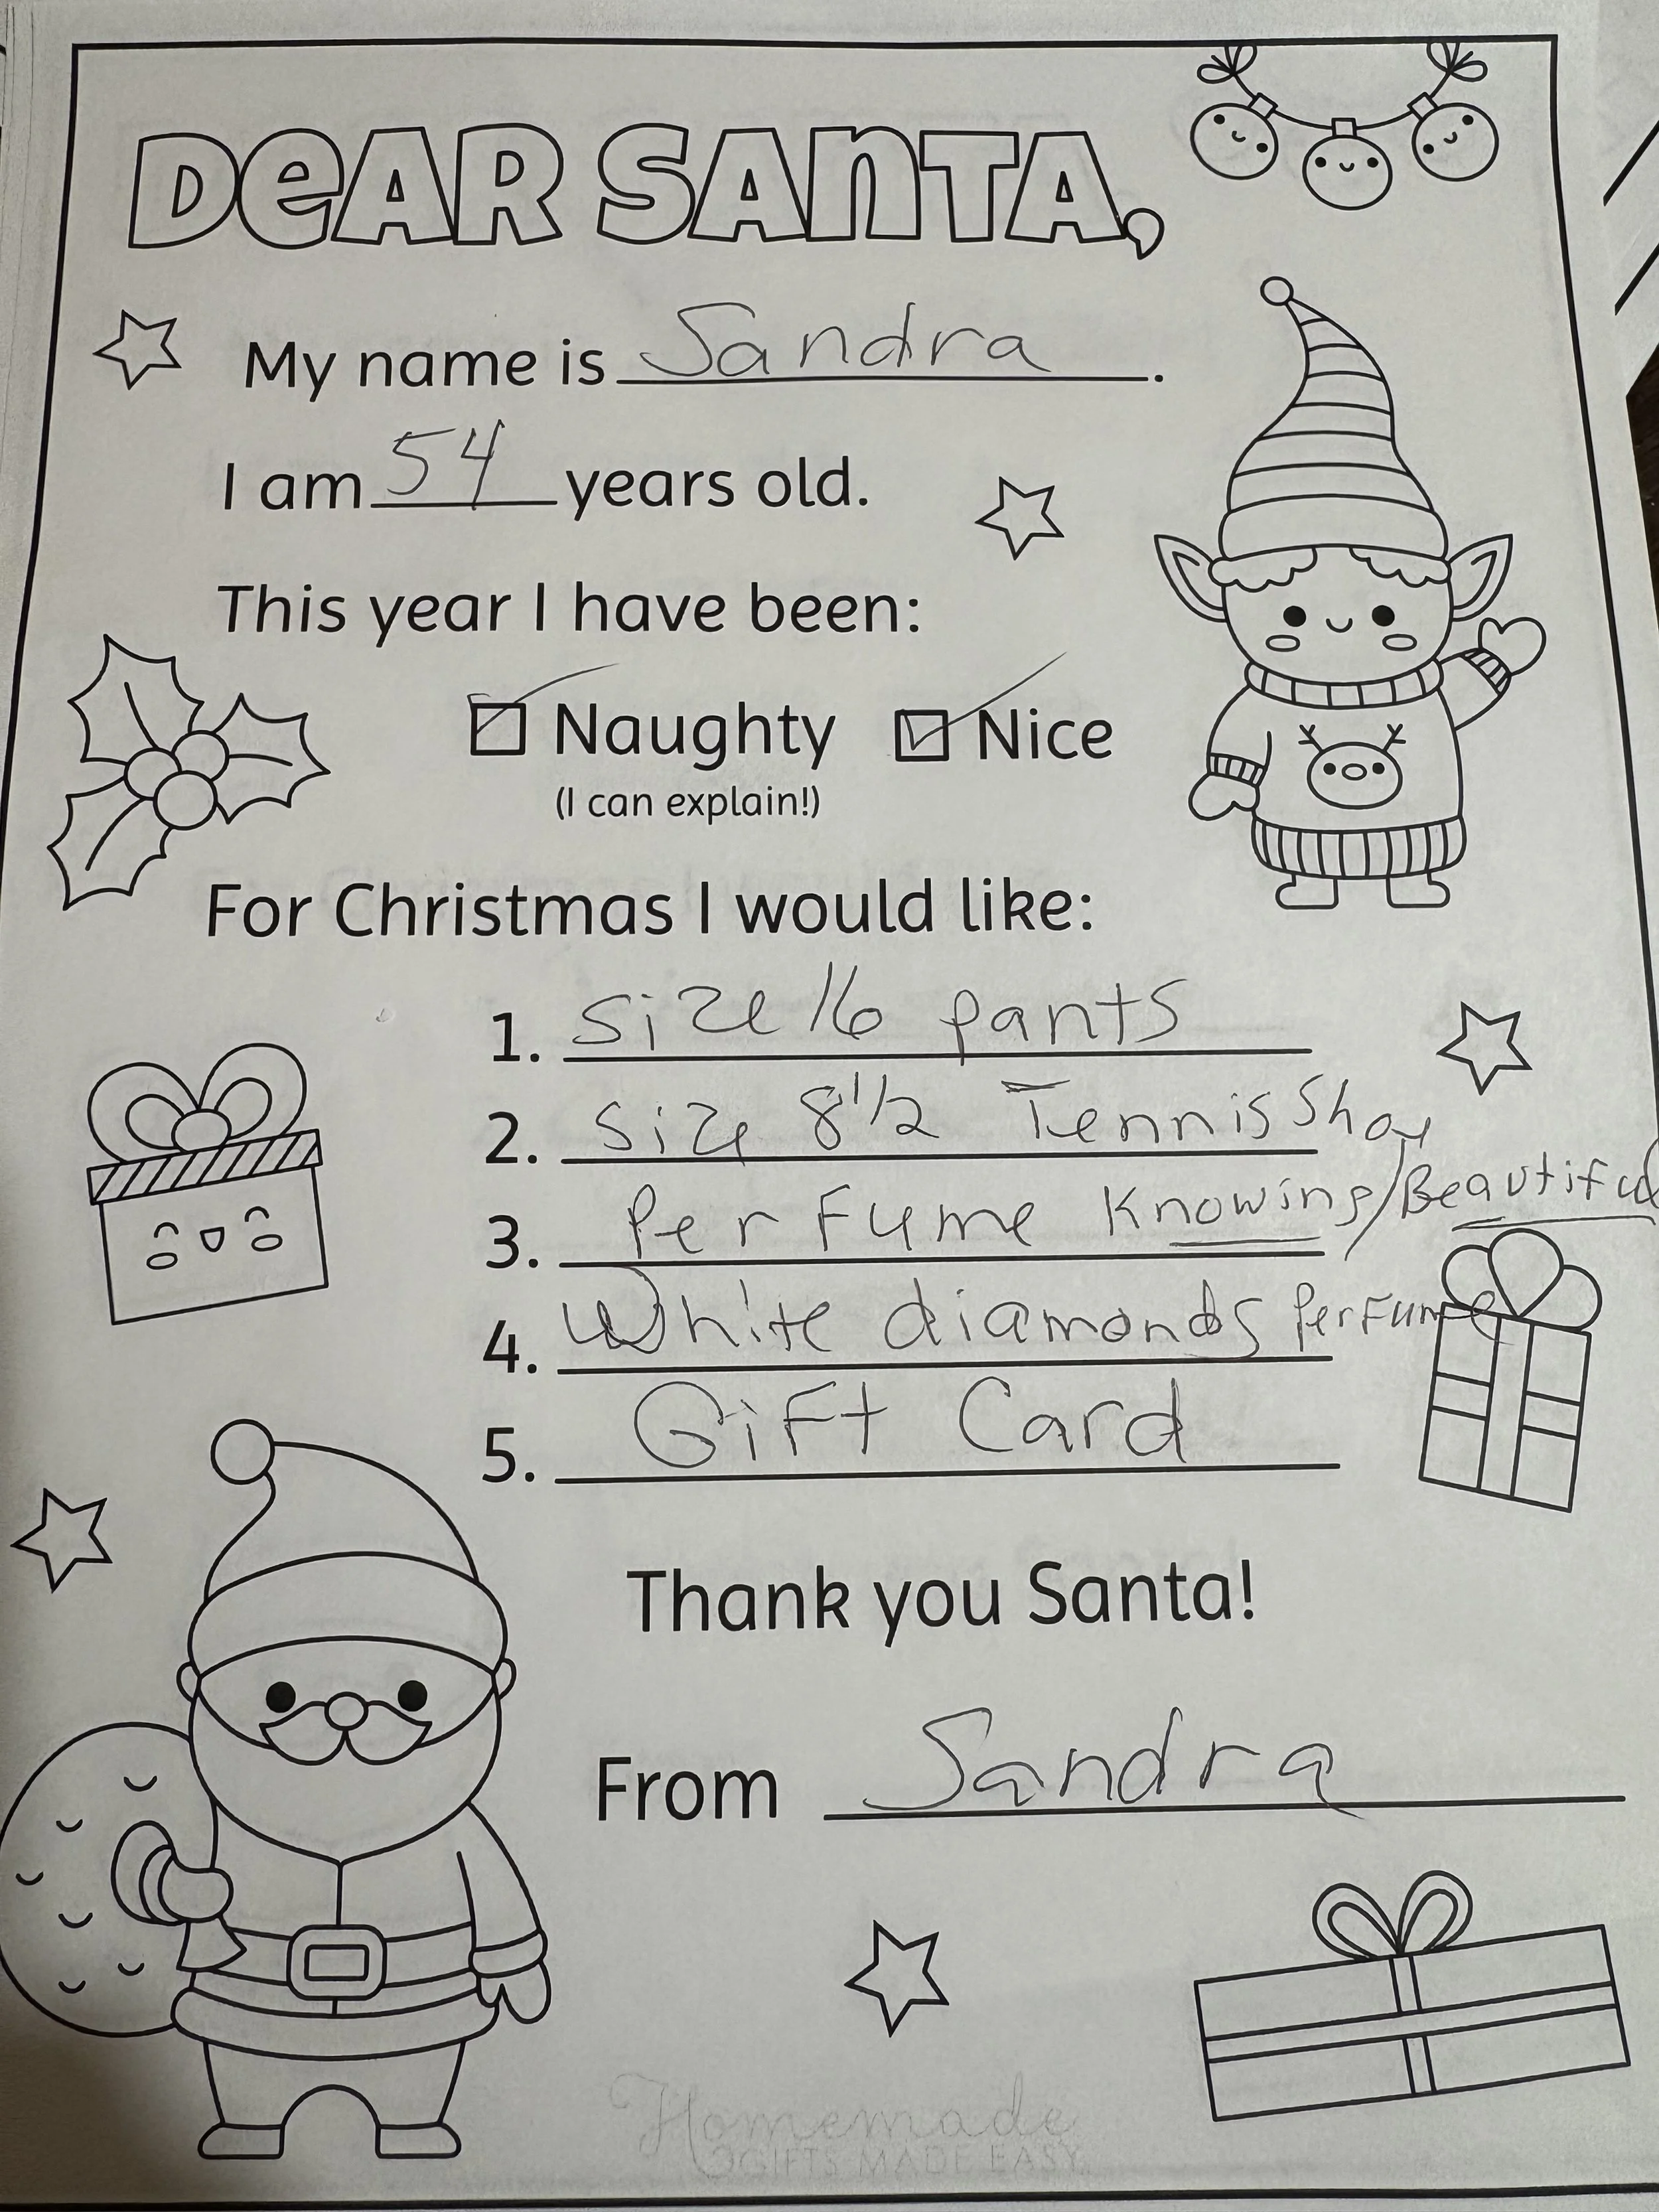 DeAR SAnTA,
My name is Sandra.
I am 54 years old.
This year I have been:
Naughty Nice
(I can explain!)
For Christmas I would like:
1. Size 16 pants
2. Size 8 1/2 Tennis Shoe
3. PerFume Knowing/Beautiful
4. White diamonds PerFume
5. GiFt Card
Thank you Santa!
From Sandra
Homemade
GIFTS MADE EASY